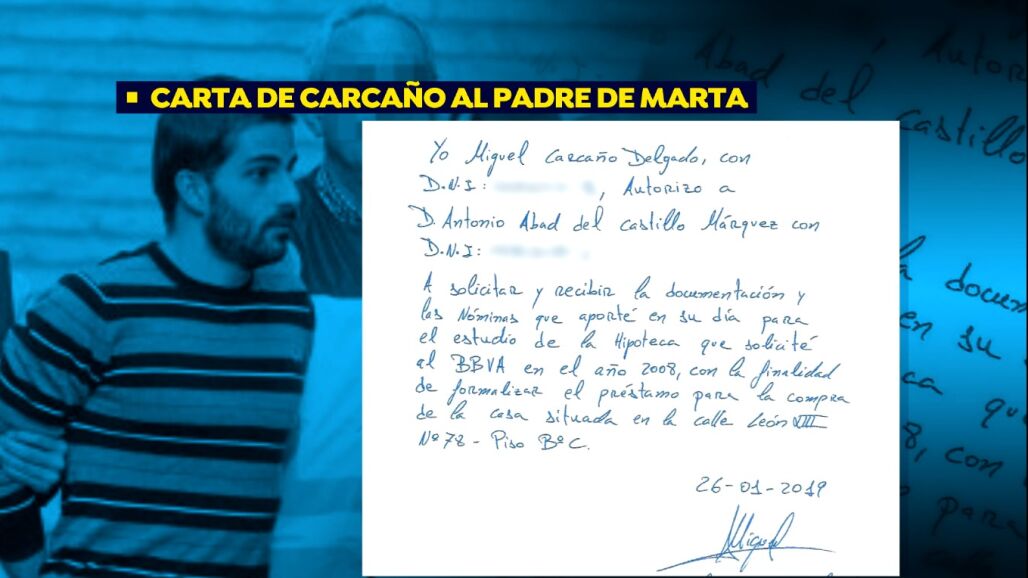 CARTA DE CARCAÑO AL PADRE DE MARTA
Yo Miguel Carcaño Delgado, con
D.N.I: , Autorizo a
D. Antonio Abad del Castillo Márquez con
D.N.I:
A solicitar y recibir la documentación y
las Nóminas que aporté en su día para
el estudio de la Hipoteca que solicité
al BBVA en el año 2008, con la finalidad
de formalizar el préstamo para la compra
de la casa situada en la calle León XIII
Nº 78 - Piso Bº C.
26-01-2019
Miguel
Autoriz
Abad del
Castillo
la docum
en su
ca qu
8, con
para